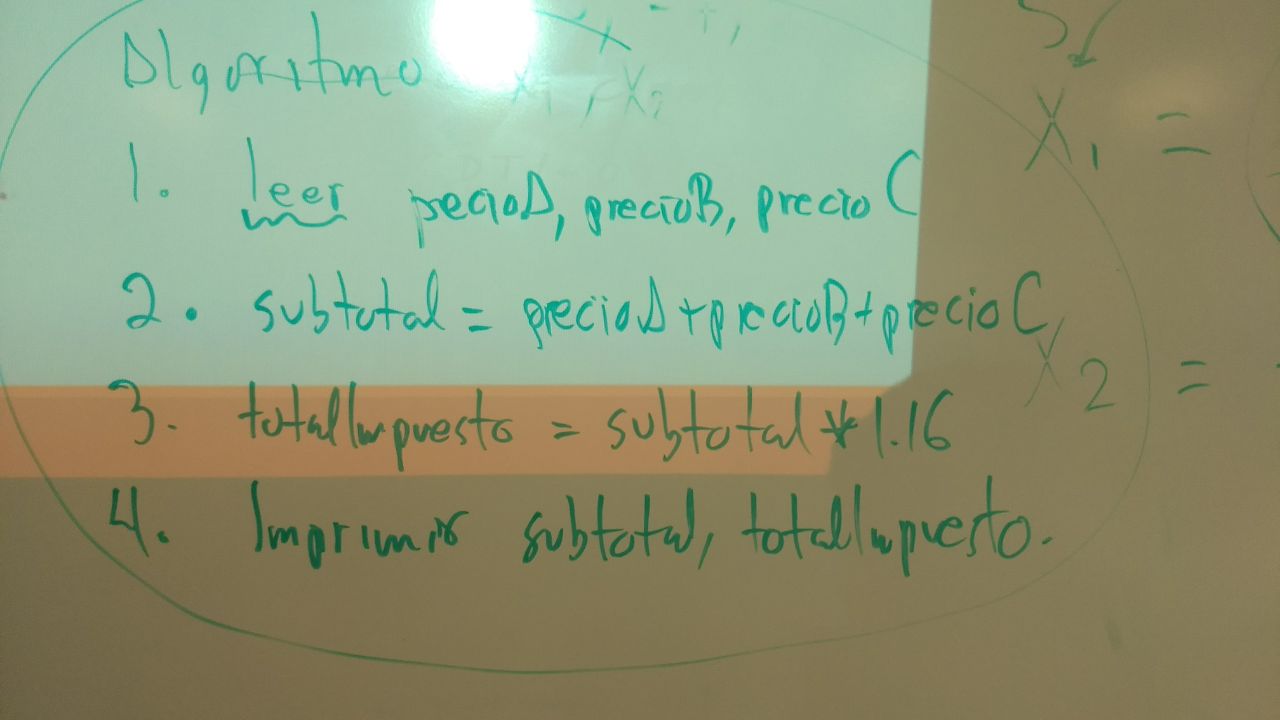 Algoritmo
1. leer precioA, precioB, precio C
2. subtotal = precioA + precioB + precio C
3. totalImpuesto = subtotal * 1.16
4. Imprimir subtotal, totalImpuesto.
X1 =
X2 =